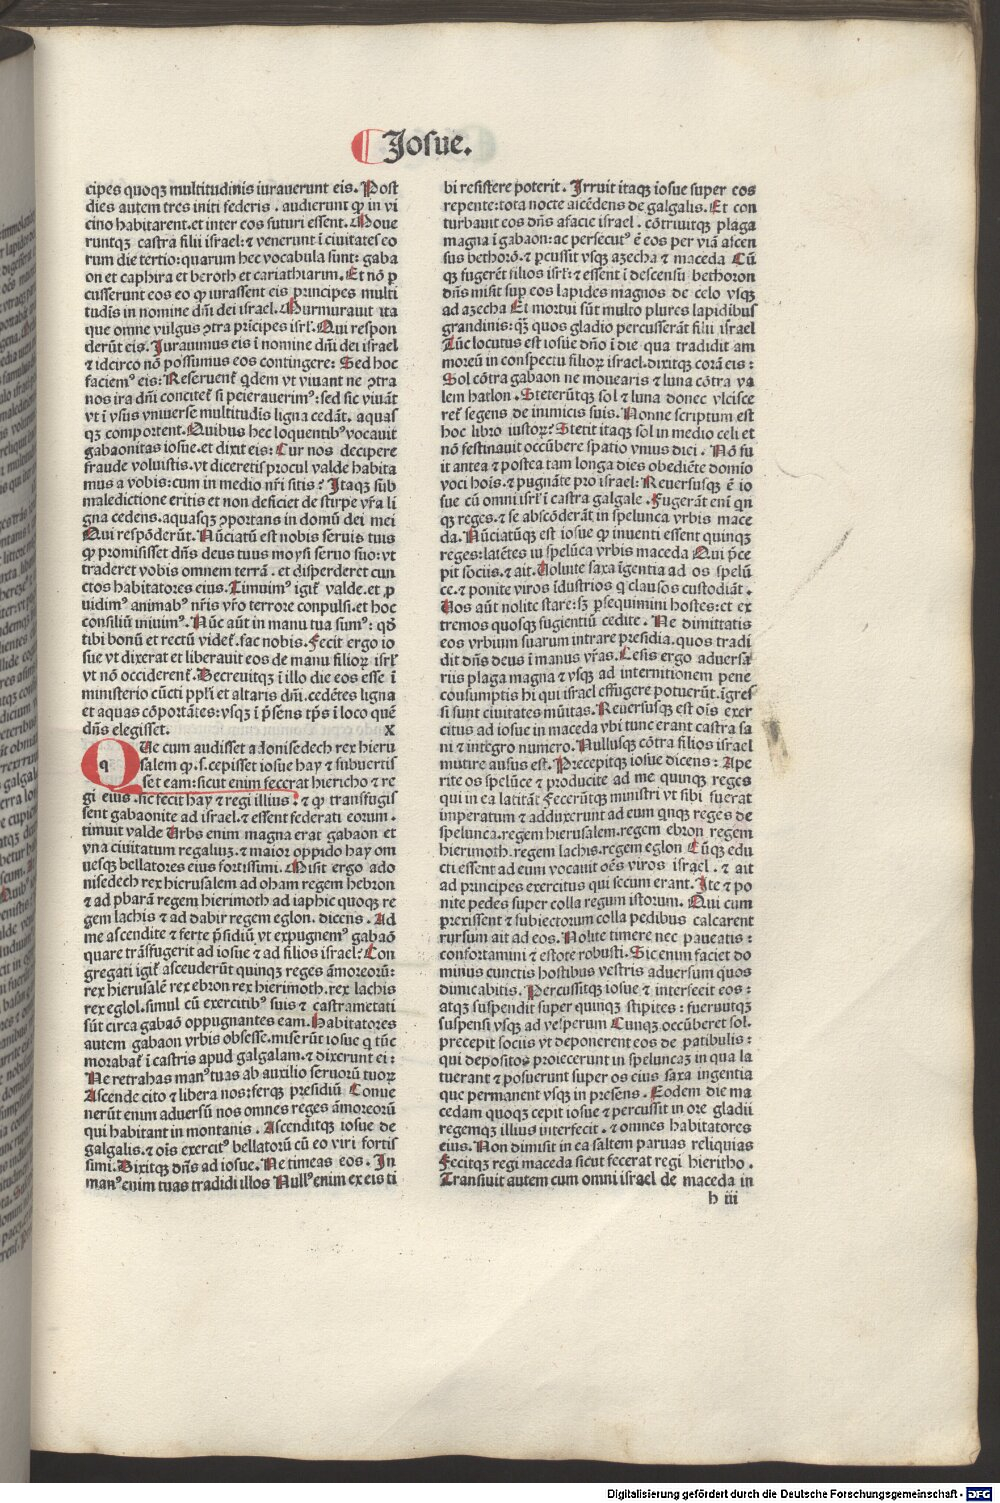 Josue.
cipes quoqꝫ multitudinis iurauerunt eis. Post
dies autem tres initi federis . audierunt ꝙ in vi
cino habitarent.et inter eos futuri essent. Moue
runtqꝫ castra filii israel: ⁊ venerunt ī ciuitates eo
rum die tertio: quarum hec vocabula sunt: gaba
on et caphira et beroth et cariathiarim. Et nō ꝑ
cusserunt eos eo ꝙ iurassent eis principes multi
tudīs in nomine dn̄i dei israel. Murmurauit ita
que omne vulgus ꝯtra prīcipes isrl̓. Qui respon
derūt eis. Iurauimus eis ī nomine dn̄i dei israel
⁊ idcirco nō possumus eos contingere: Sed hoc
faciemꝰ eis: Reseruent̓ qͥdem vt viuant ne ꝯtra
nos ira dn̄i concitet̓ si peierauerimꝰ: sed sic viuāt
vt ī vsus vniuerse multitudīs ligna cedāt. aquas
qꝫ comportent. Quibus hec loquentibꝰ vocauit
gabaonitas iosue. et dixit eis: Cur nos decipere
fraude voluistis. vt diceretis procul valde habita
mus a vobis: cum in medio nr̄i sitis? Itaqꝫ sub
maledictione eritis et non deficiet de stirpe vr̄a li
gna cedens. aquasqꝫ ꝯportans in domū dei mei
Qui respōderūt. Nūciatū est nobis seruis tuis
ꝙ promisisset dn̄s deus tuus moysi seruo suo: vt
traderet vobis omnem terrā . et disperderet cun
ctos habitatores eius. Timuimꝰ igit̓ valde. et ꝓ
uidimꝰ animabꝰ nr̄is vr̄o terrore conpulsi. et hoc
consiliū iniuimꝰ. Nūc aūt in manu tua sumꝰ: qd̄
tibi bonū et rectū videt̓. fac nobis. Fecit ergo io
sue vt dixerat et liberauit eos de manu filioꝝ isrl̓
vt nō occiderent̓. Decreuitqꝫ ī illo die eos esse ī
ministerio cūcti ppl̓i et altaris dn̄i. cedētes ligna
et aquas cōportātes: vsqꝫ ī p̄sens tp̄s ī loco quē
dn̄s elegisset. x
Que cum audisset adonisedech rex hieru
salem ꝙ .s. cepisset iosue hay ⁊ subuertis
set eam: sicut enim fecerat hiericho ⁊ re
gi eius .sic fecit hay ⁊ regi illius: ⁊ ꝙ transfugis
sent gabaonite ad israel. ⁊ essent federati eorum .
timuit valde Urbs enim magna erat gabaon et
vna ciuitatum regaliuꝫ. ⁊ maior oppido hay om
nesqꝫ bellatores eius fortissimi. Misit ergo ado
nisedech rex hierusalem ad oham regem hebron
⁊ ad pharā regem hierimoth ad iaphic quoqꝫ re
gem lachis ⁊ ad dabir regem eglon. dicens . Ad
me ascendite ⁊ ferte p̄sidiū vt expugnemꝰ gabaō
quare trāsfugerit ad iosue ⁊ ad filios israel? Con
gregati igit̓ ascenderūt quinqꝫ reges āmoreorū:
rex hierusalē rex ebron rex hierimoth. rex lachis
rex eglol. simul cū exercitibꝰ suis ⁊ castrametati
sūt circa gabaō oppugnantes eam. Habitatores
autem gabaon vrbis obsesse. miserūt iosue q̄ tūc
morabat̓ ī castris apud galgalam. ⁊ dixerunt ei:
Ne retrahas manꝰ tuas ab auxilio seruorū tuoꝝ
Ascende cito ⁊ libera nos: ferqꝫ presidiū Conue
nerūt enim aduersū nos omnes reges āmoreorū
qui habitant in montanis . Ascenditqꝫ iosue de
galgalis. ⁊ oīs exercitꝰ bellatorū cū eo viri fortis
simi. Dixitqꝫ dn̄s ad iosue. Ne timeas eos. In
manꝰ enim tuas tradidi illos Nullꝰ enim ex eis ti
bi resistere poterit . Irruit itaqꝫ iosue super eos
repente: tota nocte aſcēdens de galgalis. Et con
turbauit eos dn̄s afacie israel . cōtriuitqꝫ plaga
magna ī gabaon: ac persecutꝰ ē eos per viā ascen
sus bethorō. ⁊ ꝑcussit vsqꝫ azecha ⁊ maceda Cū
qꝫ fugerēt filios isrl̓: ⁊ essent ī descensu bethoron
dn̄s misit suꝑ eos lapides magnos de celo vsqꝫ
ad azecha Et mortui sūt multo plures lapidibus
grandinis: qꝫ̄ quos gladio percusserāt filii israel
Tūc locutus est iosue dn̄o ī die qua tradidit am
moreū in conspectu filioꝝ israel. dixitqꝫ corā eis:
Sol cōtra gabaon ne mouearis ⁊ luna cōtra va
lem hailon . Steterūtqꝫ sol ⁊ luna donec vlcisce
ret̓ segens de inimicis suis. Nonne scriptum est
hoc libro iustoꝝ? Stetit itaqꝫ sol in medio celi et
nō festinauit occūbere spatio vnius diei . Nō fu
it antea ⁊ postea tam longa dies obediēte domīo
voci hoīs. ⁊ pugnāte pro israel: Reuersusqꝫ ē io
sue cū omni isrl̓ ī castra galgale . Fugerāt eni qn
qꝫ reges. ⁊ se abscōderāt in spelunca vrbis mace
da. Nūciatūqꝫ est iosue ꝙ inuenti essent quinqꝫ
reges: latētes iu spelūca vrbis maceda Qui p̄ce
pit sociis. ⁊ ait. Uoluite saxa īgentia ad os spelū
ce. ⁊ ponite viros īdustrios q̄ clausos custodiāt.
Uos aūt nolite stare: sꝫ ꝑsequimini hostes: et ex
tremos quosqꝫ fugientiū cedite . Ne dimittatis
eos vrbium suarum intrare presidia. quos tradi
dit dn̄s deus ī manus vr̄as. Cesis ergo aduersa
riis plaga magna ⁊ vsqꝫ ad internitionem pene
consumptis hi qui israel effugere potuerūt. īgres
si sunt ciuitates mūitas. Reuersusqꝫ est oīs exer
citus ad iosue in maceda vbi tunc erant castra sa
ni ⁊ integro numero. Nullusqꝫ cōtra filios israel
mutire ausus est. Precepitqꝫ iosue dicens: Ape
rite os spelūce ⁊ producite ad me quinqꝫ reges
qui in ea latitāt Fecerūtqꝫ ministri vt sibi fuerat
imperatum ⁊ adduxerunt ad eum qnqꝫ reges de
spelunca. regem hierusalem. regem ebron regem
hierimoth. regem lachis. regem eglon Cūqꝫ edu
cti essent ad eum vocauit oēs viros israel . ⁊ ait
ad principes exercitus qui secum erant. Ite ⁊ po
nite pedes super colla regum istorum. Qui cum
ꝑrexissent ⁊ subiectorum colla pedibus calcarent
rursum ait ad eos. Nolite timere nec paueatis:
confortamini ⁊ estote robusti. Sic enim faciet do
minus cunctis hostibus vestris aduersum quos
dimicabitis. Percussitqꝫ iosue ⁊ interfecit eos:
atqꝫ suspendit super quinqꝫ stipites: fueruntqꝫ
suspensi vsqꝫ ad vesperum Cunqꝫ occūberet sol.
precepit sociis vt deponerent eos de patibulis:
qui depositos proiecerunt in speluncaꝫ in qua la
tuerant ⁊ posuerunt super os eius saxa ingentia
que permanent vsqꝫ in presens. Eodem die ma
cedam quoqꝫ cepit iosue ⁊ percussit in ore gladii
regemqꝫ illius interfecit . ⁊ omnes habitatores
eius. Non dimisit in ea saltem paruas reliquias
Fecitqꝫ regi maceda sicut fecerat regi hieritho .
Transiuit autem cum omni israel de maceda in
h iii
Digitalisierung gefördert durch die Deutsche Forschungsgemeinschaft - DFG